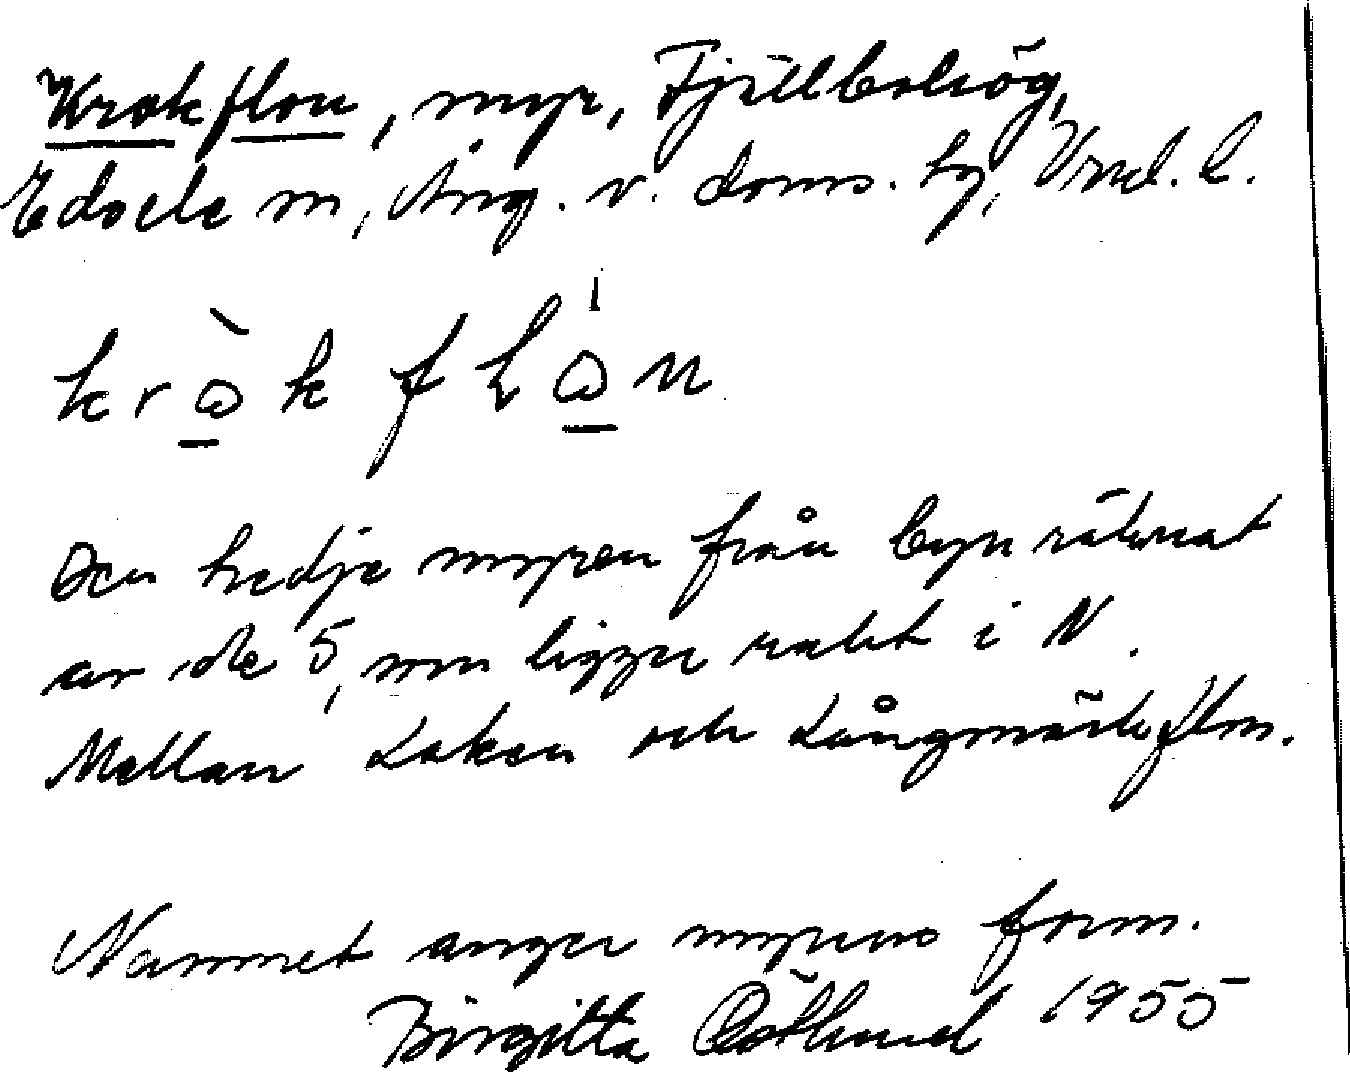 Krokflon, myr, Fjällbohög,
Edsele sn, Ång. v. doms. hg, Vnl. l.
Den tredje myren från byn räknat
av de 5, som ligger rakt i N.
Mellan Loken och Långmårkflon.
Namnet anger myrens form.
Birgitta Östlund 1955